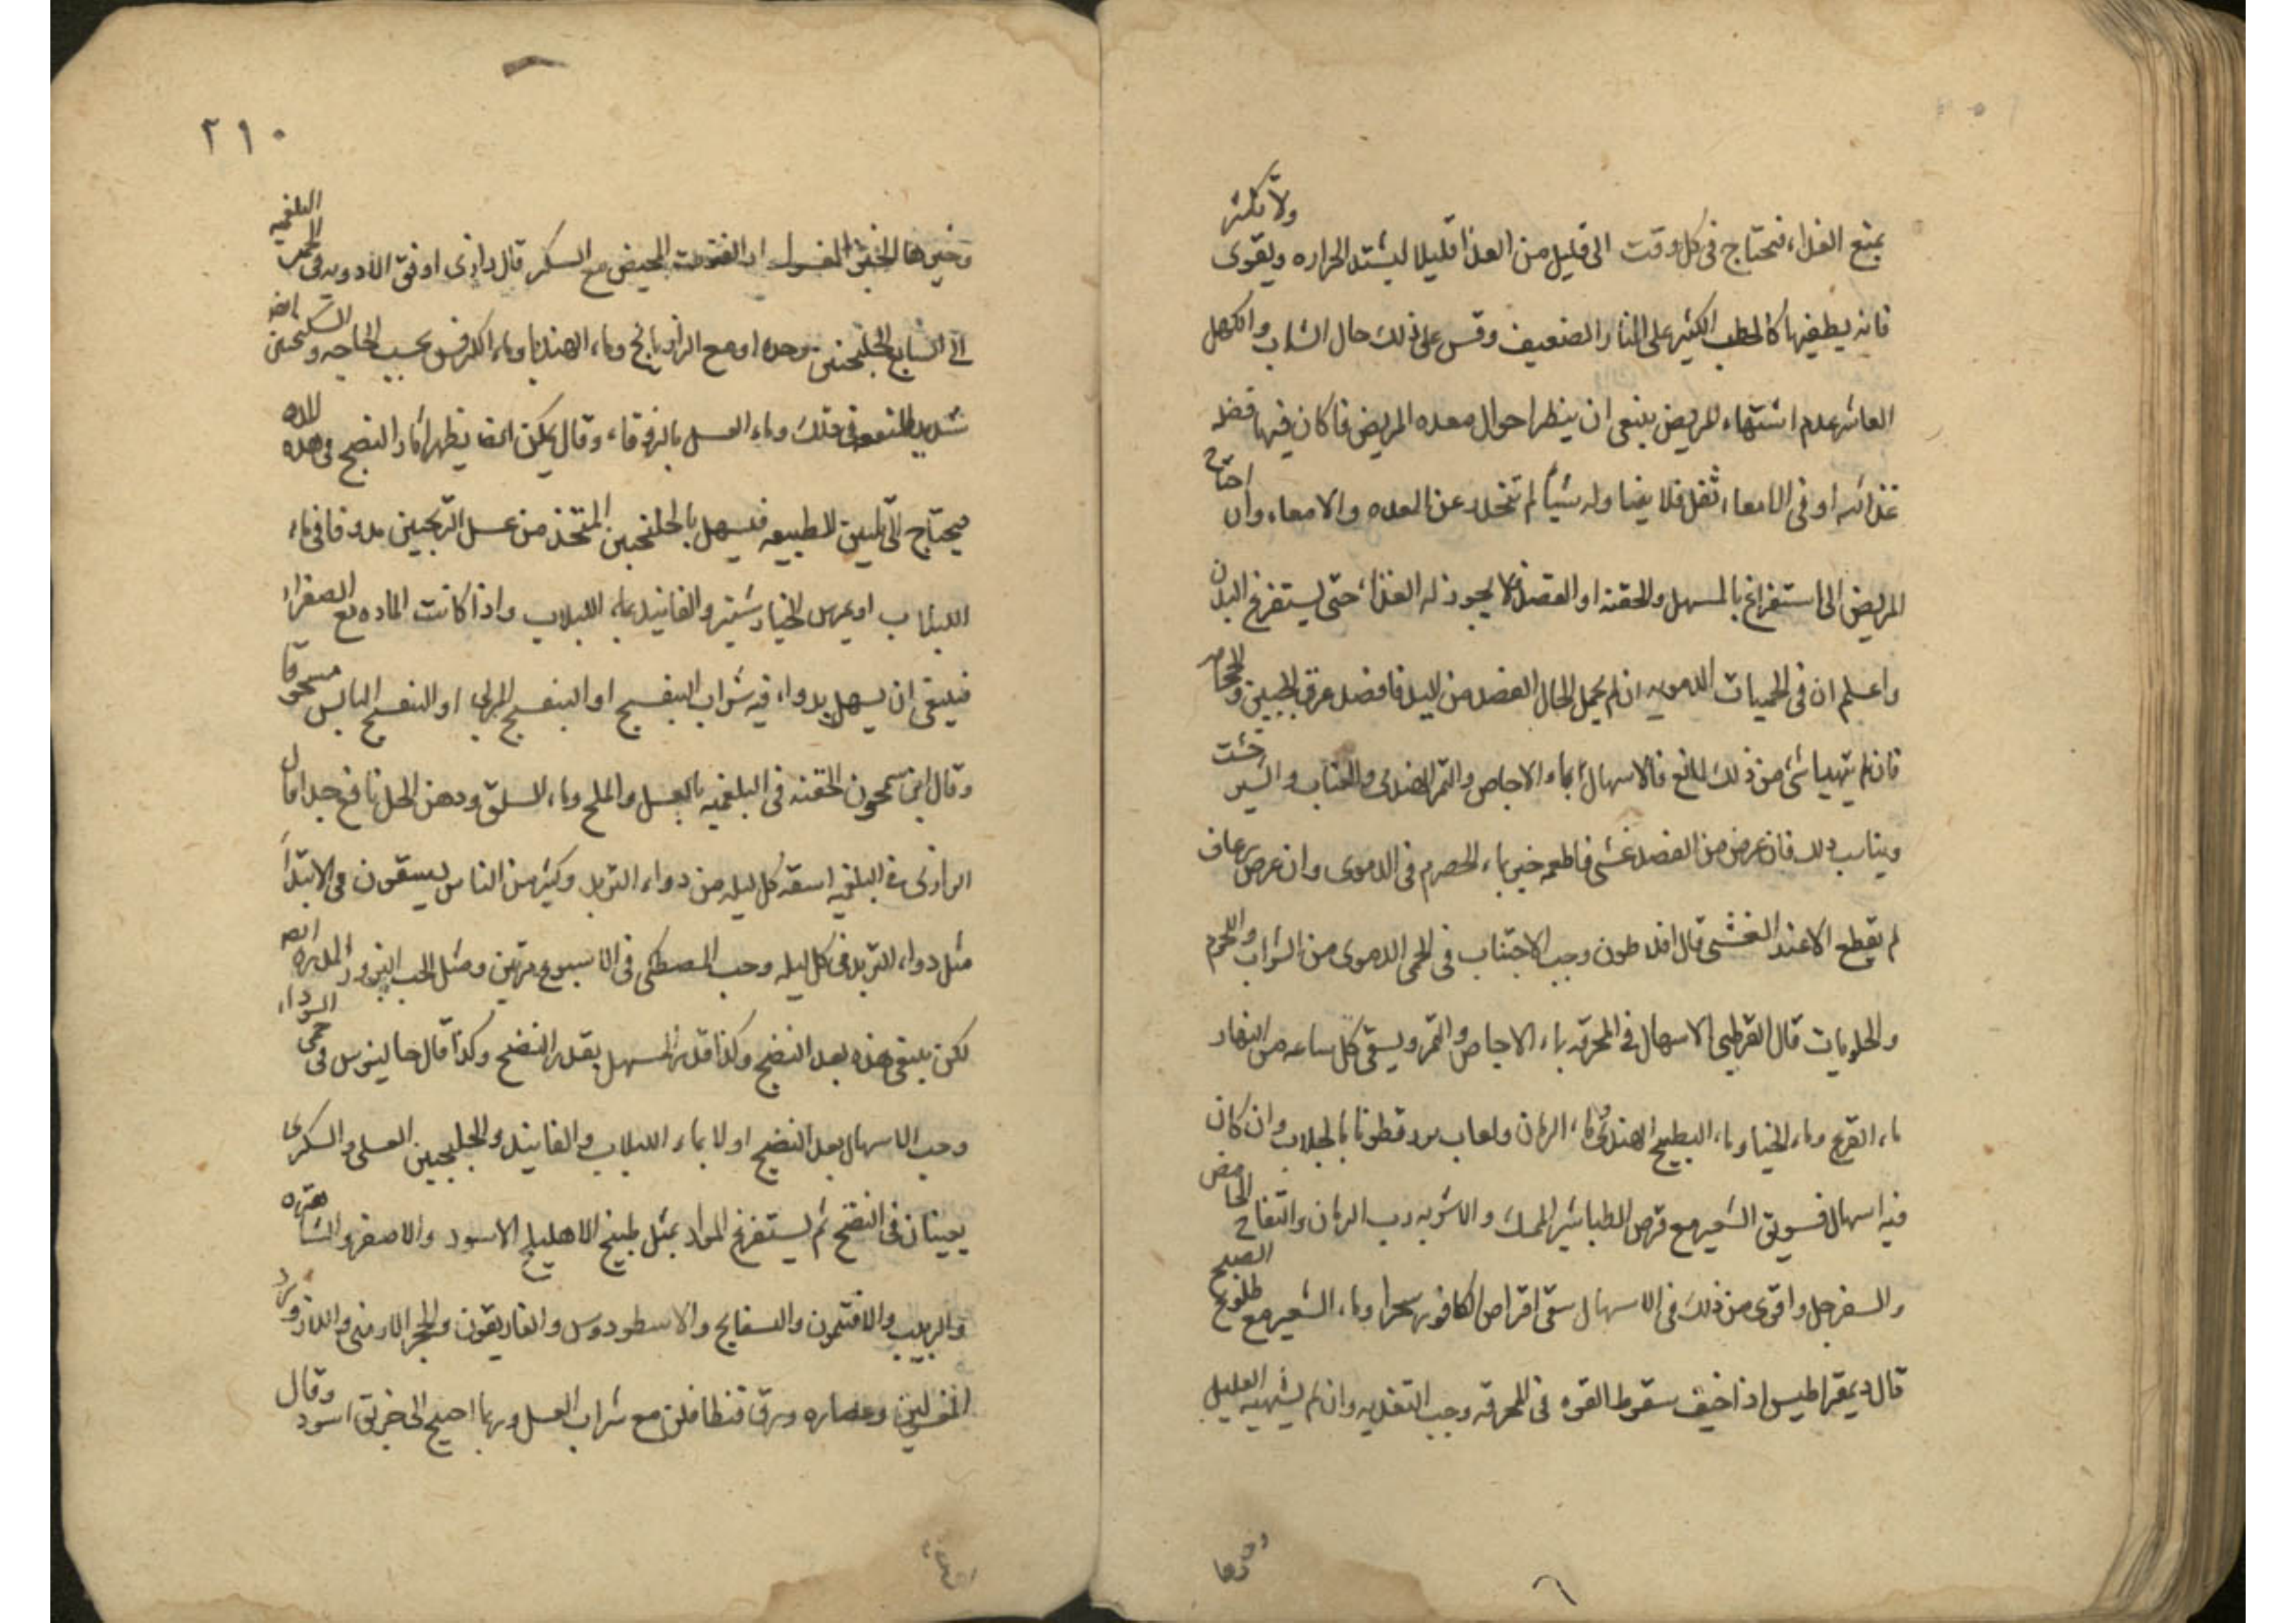 يمنع الغذاء فيحتاج فى كل وقت الى قليل من الغذا قليلا ليشتد الحراره ويقوى ولا يكثر
فانه يطفيها كالحطب الكثير على النار الضعيف وقس على ذلك حال الشاب والكهل
العاشر عدم اشتهاء المريض ينبغى ان ينظر احوال معده المريض فاكان فيها فضله
غذائيه او فى الامعاء ثفل فلا يضاوله شيأ لم تنحدر عن المعده والامعاء وان احتاج
المريض الى استفراغ بالمسهل والحقنه او الفصد فلا يجوز له الغذاء حتى يستفرغ البدن
واعلم ان فى الحميات الدمويه ان لم يحمل الحال الفصد من اليد فافصد عرق الجبين والحجامه
فان لم يتهيا شئ من ذلك لمانع فالاسهال بماء الاجاص والتمر الهندى والعناب والشير خشت
ويناسب ذلك فان عرض من الفصد غشى فاطعمه خبز بماء الحصرم فى الدموى وان عرض رعاف
لم يقطع الا عند الغشى قال افلاطون وجب الاجتناب فى الحمى الدموى من الشراب واللحوم
والحلويات قال القرطبى الاسهال فى المحرقه بماء الاجاص والتمر ويسقى كل ساعه من النهار
ماء القرع وماء الخيار وماء البطيخ الهندى وماء الرمان ولعاب بزر قطونا بالجلاب وان كان
فيه اسهال فسويق الشعير مع قرص الطباشير الممسك والاشربه رب الرمان والتفاح الحامض
والسفرجل واقوى من ذلك فى الاسهال سقى اقراص الكافور سحرا وماء الشعير مع طلوع الصبح
قال ديمقراطيس اذا خيف سقوط القوه فى المحرقه وجب التغذيه وان لم يشتهيه العليل
٢١٠
مع السكر قال رازى اوفق الادويه فى الحمى البلغميه
الى السابع الجلنجبين وحده او مع الرازيانج وماء الهندبا وماء الكرفس بحسب الحاجه والسكنجبين ايضا
شديد النفع فى ذلك وماء العسل بالزوفاء وقال يمكن ايضا يظهر اثار النضج فى هذه المده
فيحتاج الى تليين الطبيعه فيسهل بالجلنجبين المتخذ من عسل الترنجبين مدوفا فى ماء
اللبلاب او بمرس الخيار شنبر والفانيد بماء اللبلاب واذا كانت الماده مع الصفراء
فينبغى ان يسهل بدواء فيه شراب البنفسج او البنفسج المربى او البنفسج اليابس مسحوقا
وقال ابن سمحون الحقنه فى البلغميه بالعسل والملح وماء السلق ودهن الحل نافع جدا قال
الرازى فى البلغميه اسقه كل ليله من دواء التربد وكثير من الناس يسقون فى الابتداء
مثل دواء التربد فى كل ليله وحب المصطكى فى الاسبوع مرتين ومثل الحب
لكن ينبغى هذه بعد النضج وكذا قدر المسهل بقدر النضج وكذا قال جالينوس فى حمى السوداء
وجب الاسهال بعد النضج اولا بماء اللبلاب والفانيد والجلنجبين العسلى والسكرى
يعينان فى النضج ثم يستفرغ المواد بمثل طبيخ الاهليلج الاسود والاصفر والشاهتره
والزبيب والافتيمون والبسفايج والاسطودوس والغاريقون والحجر الارمنى واللازورد
المغسولين وعصاره ورق قنطافلن مع شراب العسل وربما احتيج الى خربق اسود وقال